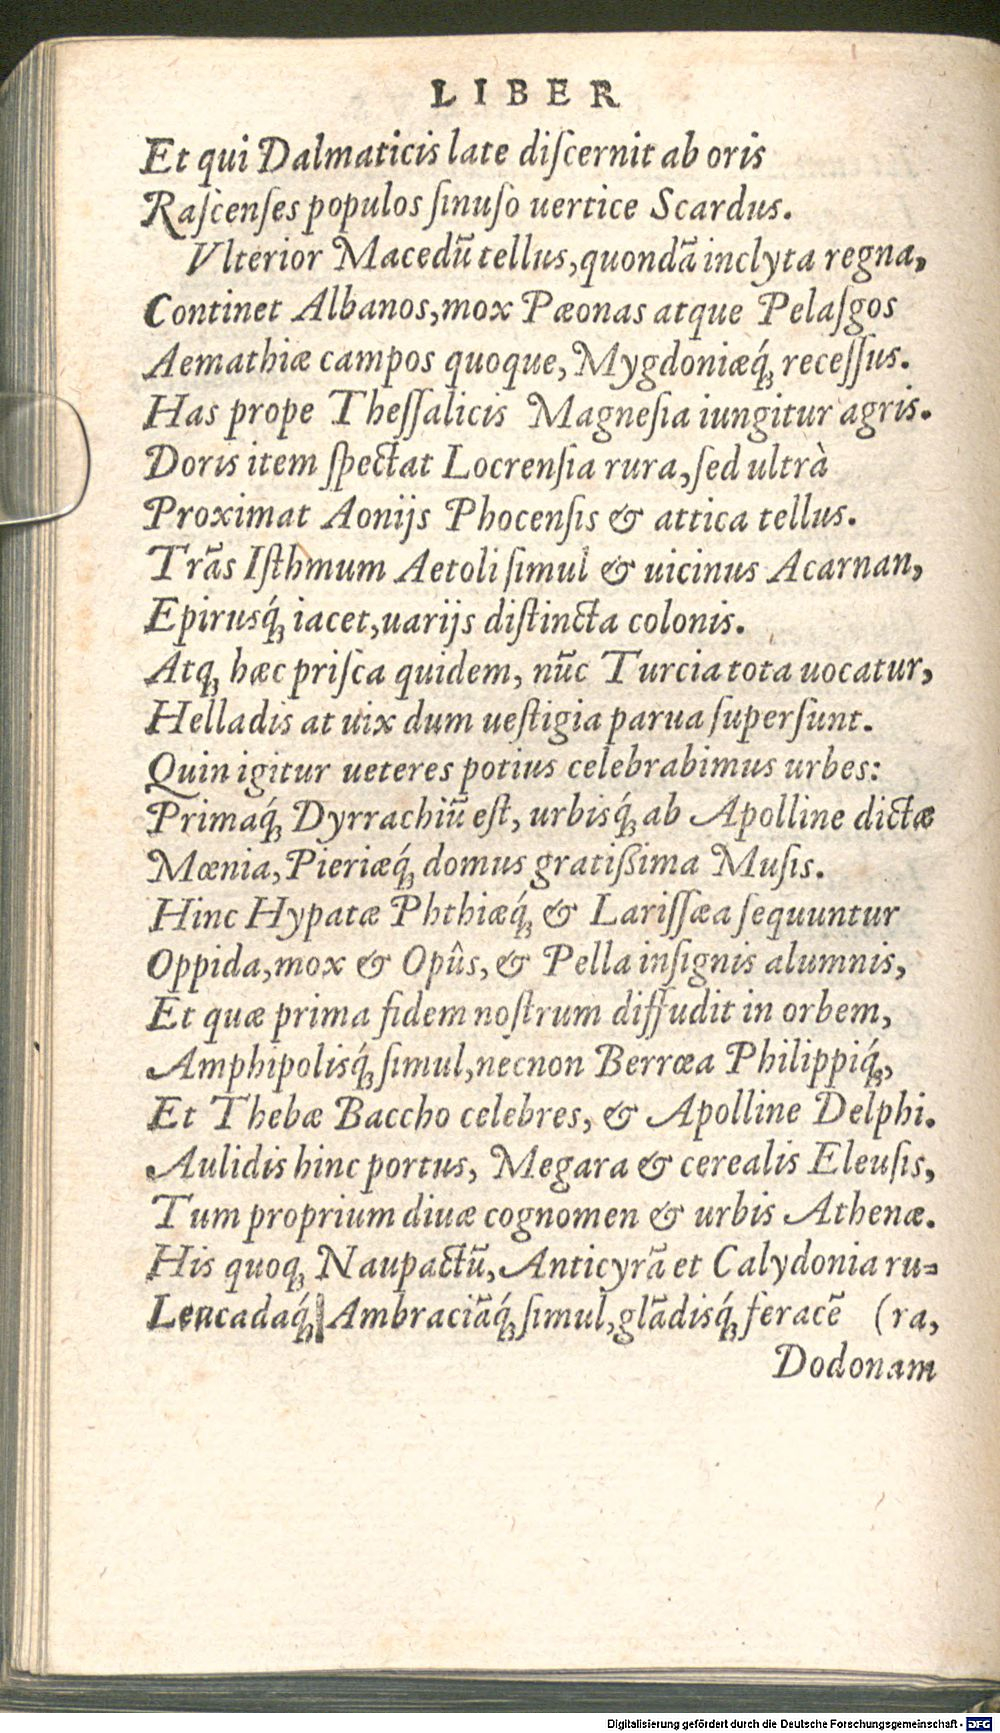 LIBER
Et qui Dalmaticis late diſcernit ab oris
Raſcenſes populos ſinuſo uertice Scardus.
Vlterior Macedū tellus, quondā inclyta regna,
Continet Albanos, mox Pæonas atque Pelaſgos
Aemathiæ campos quoque, Mygdoniæq́; receſſus.
Has prope Theſſalicis Magneſia iungitur agris.
Doris item ſpectat Locrenſia rura, ſed ultrà
Proximat Aonijs Phocenſis & attica tellus.
Trās Iſthmum Aetoli ſimul & uicinus Acarnan,
Epirusq́; iacet, uarijs diſtincta colonis.
Atq; hæc priſca quidem, nūc Turcia tota uocatur,
Helladis at uix dum ueſtigia parua ſuperſunt.
Quin igitur ueteres potius celebrabimus urbes:
Primaq́; Dyrrachiū eſt, urbisq́; ab Apolline dictæ
Mœnia, Pieriæq́; domus gratiſsima Muſis.
Hinc Hypatæ Phthiæq́; & Lariſſæa ſequuntur
Oppida, mox & Opûs, & Pella inſignis alumnis,
Et quæ prima fidem noſtrum diffudit in orbem,
Amphipolisq́; ſimul, necnon Berrœa Philippiq́;,
Et Thebæ Baccho celebres, & Apolline Delphi.
Aulidis hinc portus, Megara & cerealis Eleuſis,
Tum proprium diuæ cognomen & urbis Athenæ.
His quoq; Naupactū, Anticyrā et Calydonia ru=
Leucadaq́; Ambraciāq́; ſimul, glādisq́; feracē (ra,
Dodonam
Digitalisierung gefördert durch die Deutsche Forschungsgemeinschaft - DFG